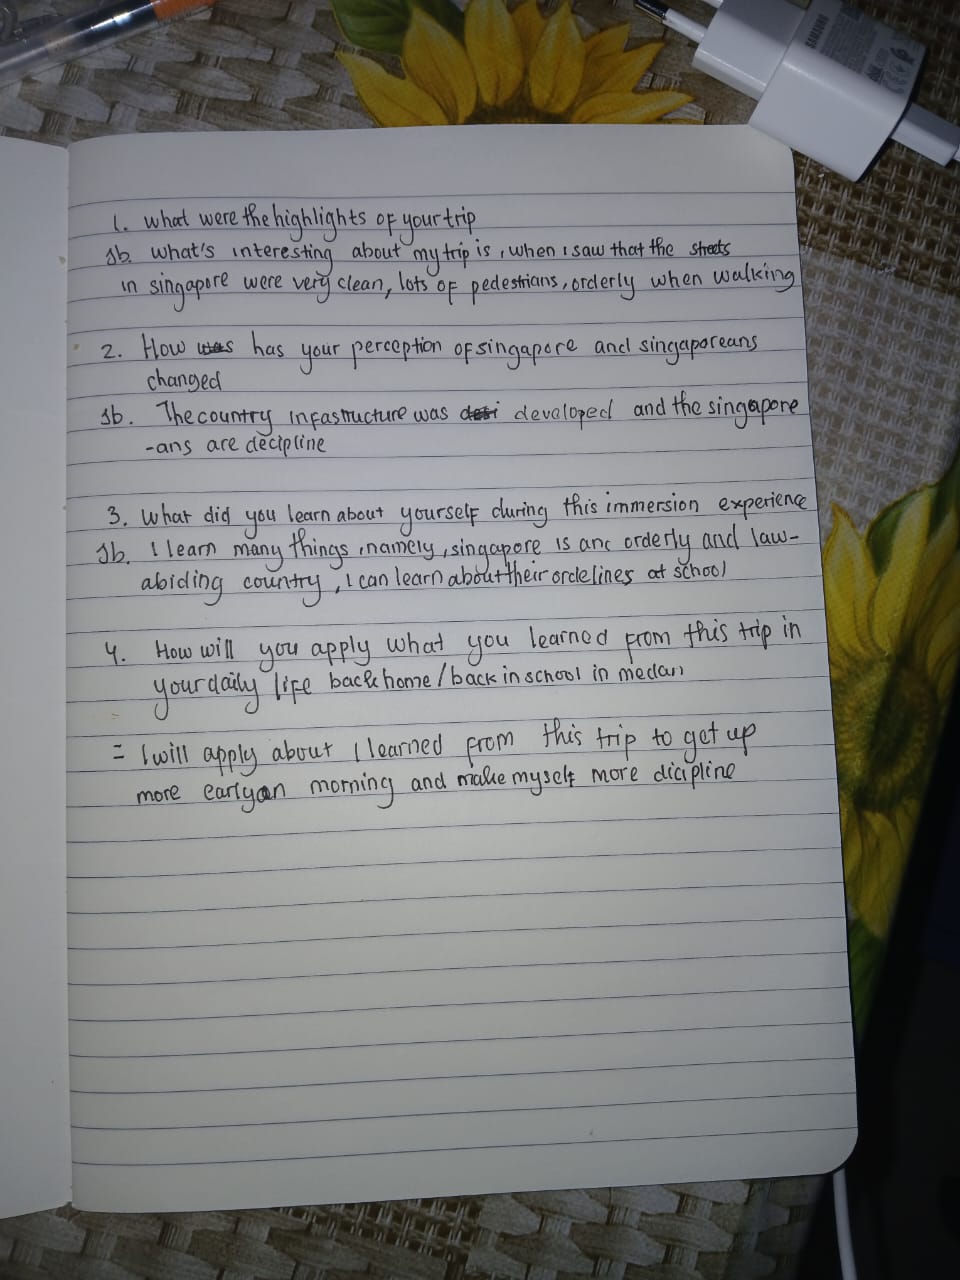 SAMSUNG
1. what were the highlights of your trip
Jb. what's interesting about my trip is, when i saw that the streets
in singapore were very clean, lots of pedestrians, orderly when walking
2. How was has your perception of singapore and singaporeans
changed
Jb. The country infastructure was desi developed and the singapore
-ans are decipline
3. What did you learn about yourself during this immersion experience
Jb. I learn many things, namely, singapore is anc orderly and law-
abiding country, I can learn about their ordelines at school
4. How will you apply what you learned from this trip in
your daily life back home / back in school in medan
= I will apply about I learned from this trip to get up
more early on morning and make myself more dicipline